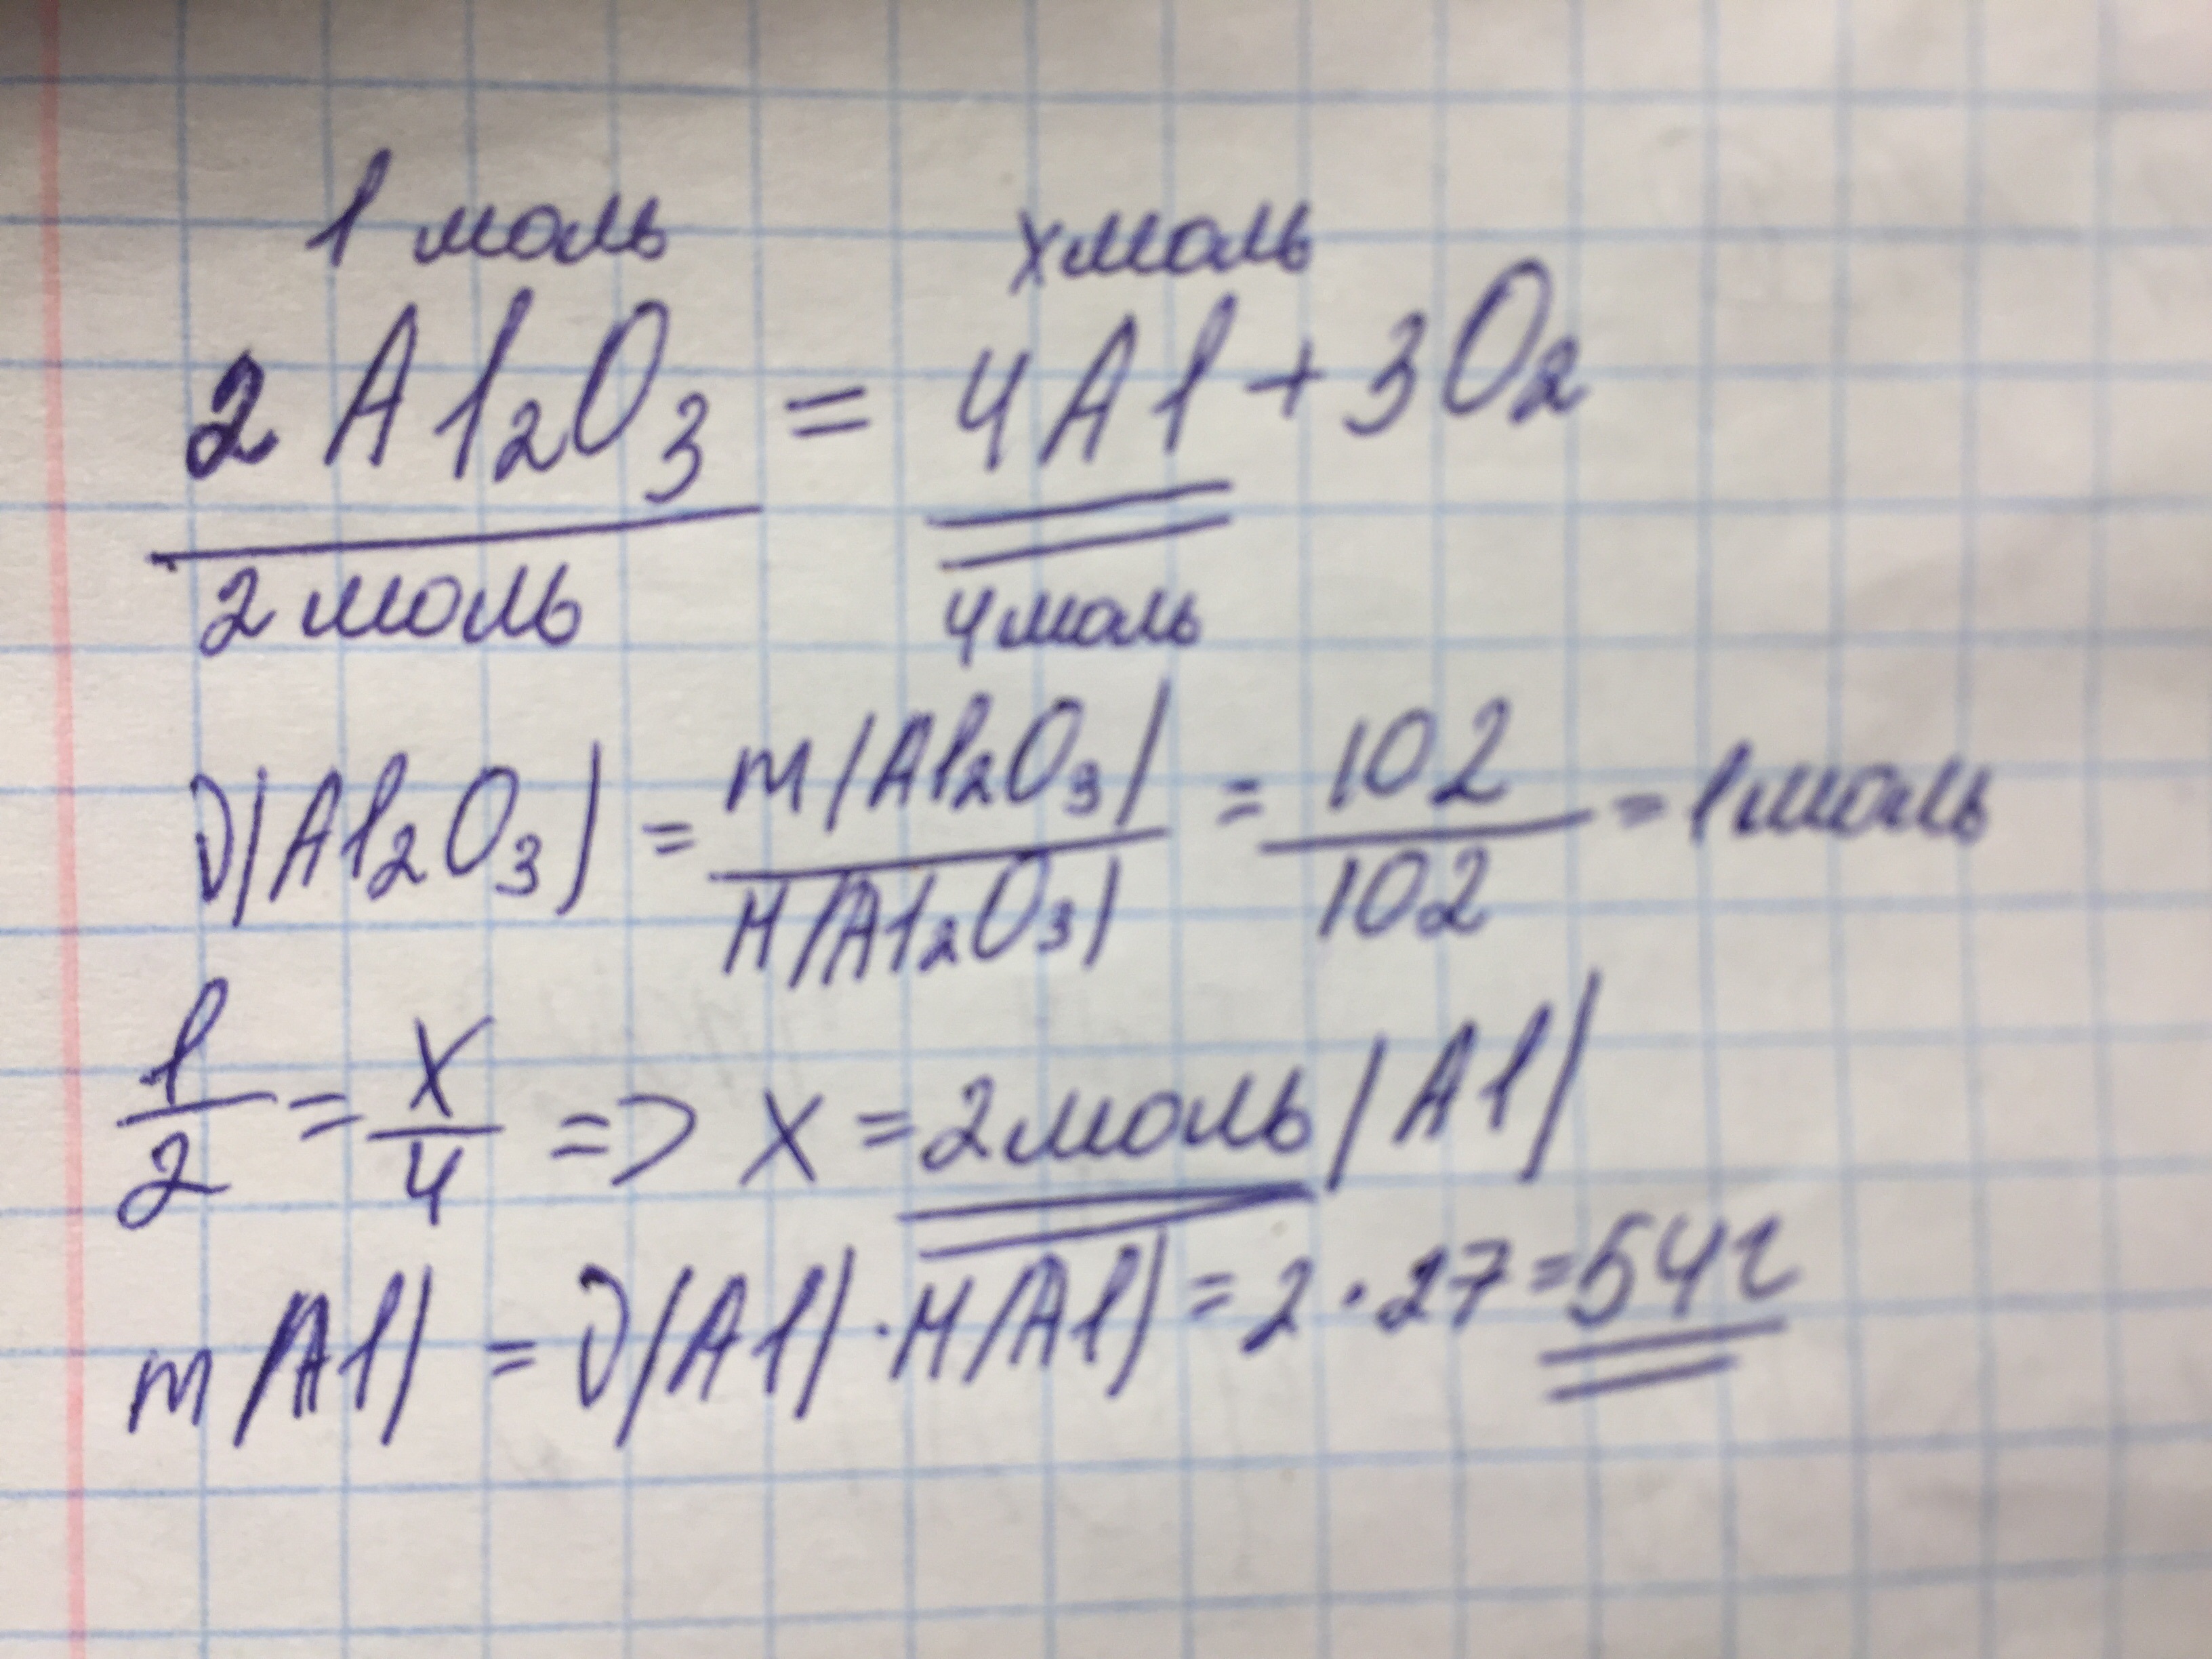 1 моль х моль
2Al₂O₃ = 4Al + 3O₂
2 моль 4 моль
ν(Al₂O₃) = m(Al₂O₃)/M(Al₂O₃) = 102/102 = 1 моль
1/2 = x/4 => x = 2 моль (Al)
m(Al) = ν(Al) · M(Al) = 2 · 27 = 54 г